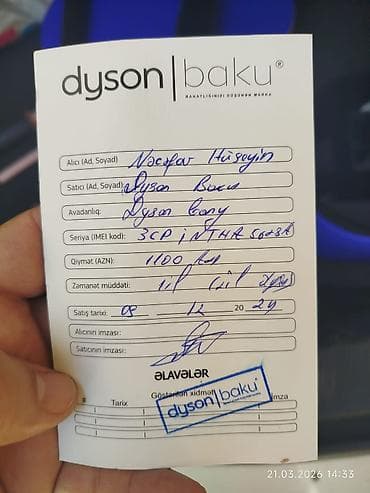 dyson | baku®
RAHATLIĞINIZI DÜŞÜNƏN MARKA
Alıcı (Ad, Soyad) Nəcəfov Hüseyin
Satıcı (Ad, Soyad): Dyson Baku
Avadanlıq: Dyson
Seriya (IMEI kod): 3CP
Qiymət (AZN): 1100
Zəmanət müddəti: 1 il
Satış tarixi: 08 12 2024
Alıcının imzası:
Satıcının imzası:
ƏLAVƏLƏR
# Tarix Göstərilən xidmət İmza
dyson | baku
21.03.2026 14:33